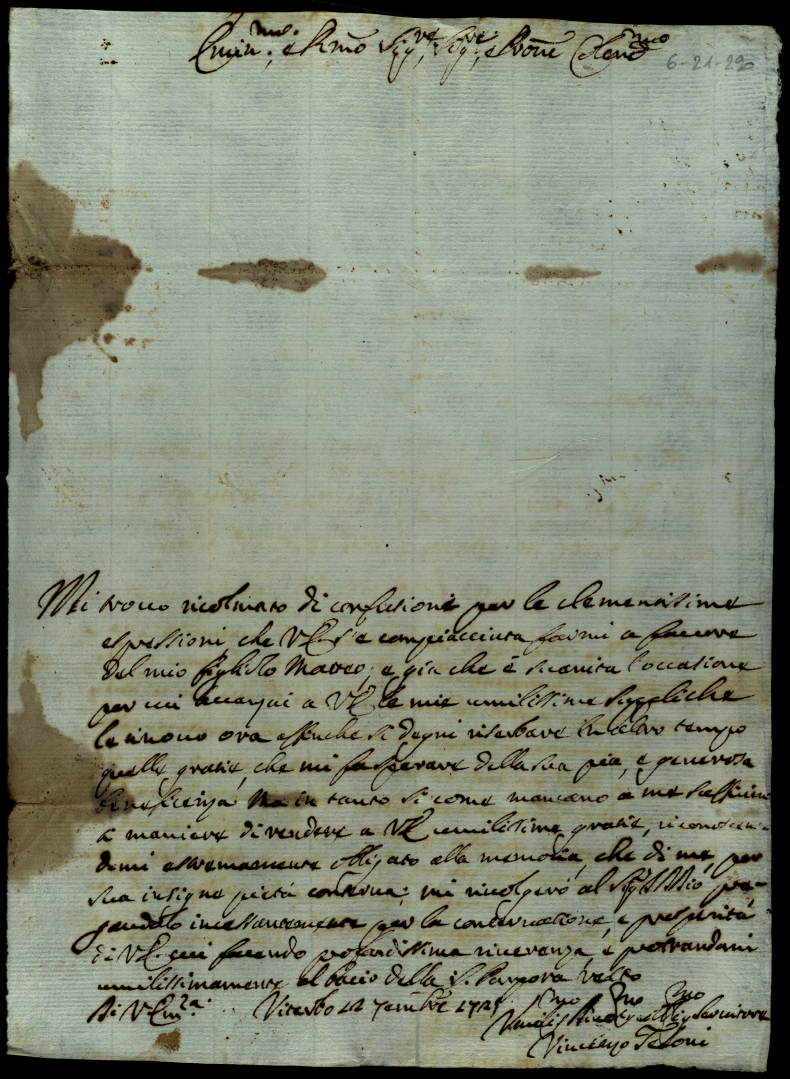 Emin.mo e Rmo Sigre, Sigre, e Prone Colendmo
6-21-290
Mi trovo ricolmato di confusione per le clementissime
espressioni che VE. s'e compiacciuta farmi a favore
del mio figliolo Matteo; e gia che è suanita l'occasione
per cui avanzai a VE le mie umilissime suppliche
le rinovo ora affinche si degni riserbare in altro tempo
quelle gratie, che mi fa sperare della sua pia, e generosa
beneficenza. Ma in tanto si come mancano a me sufficien-
a maniere di rendere a VE umilissime gratie, riconoscen-
domi estremamente obligato alla memoria, che di me, per
sua insigne pietà conserva; mi rivolgerò al Sigr Iddio pre-
gandolo incessantemente per la conservatione, e prosperità
di VE. cui facendo profondissima riverenza, e prostrandomi
umilissimamente al bacio della S. Porpora resto
Di VEmza Viterbo 12 7embre 1721
Umilismo Devotmo ed Obligmo Servitore
Vincenzo Teloni